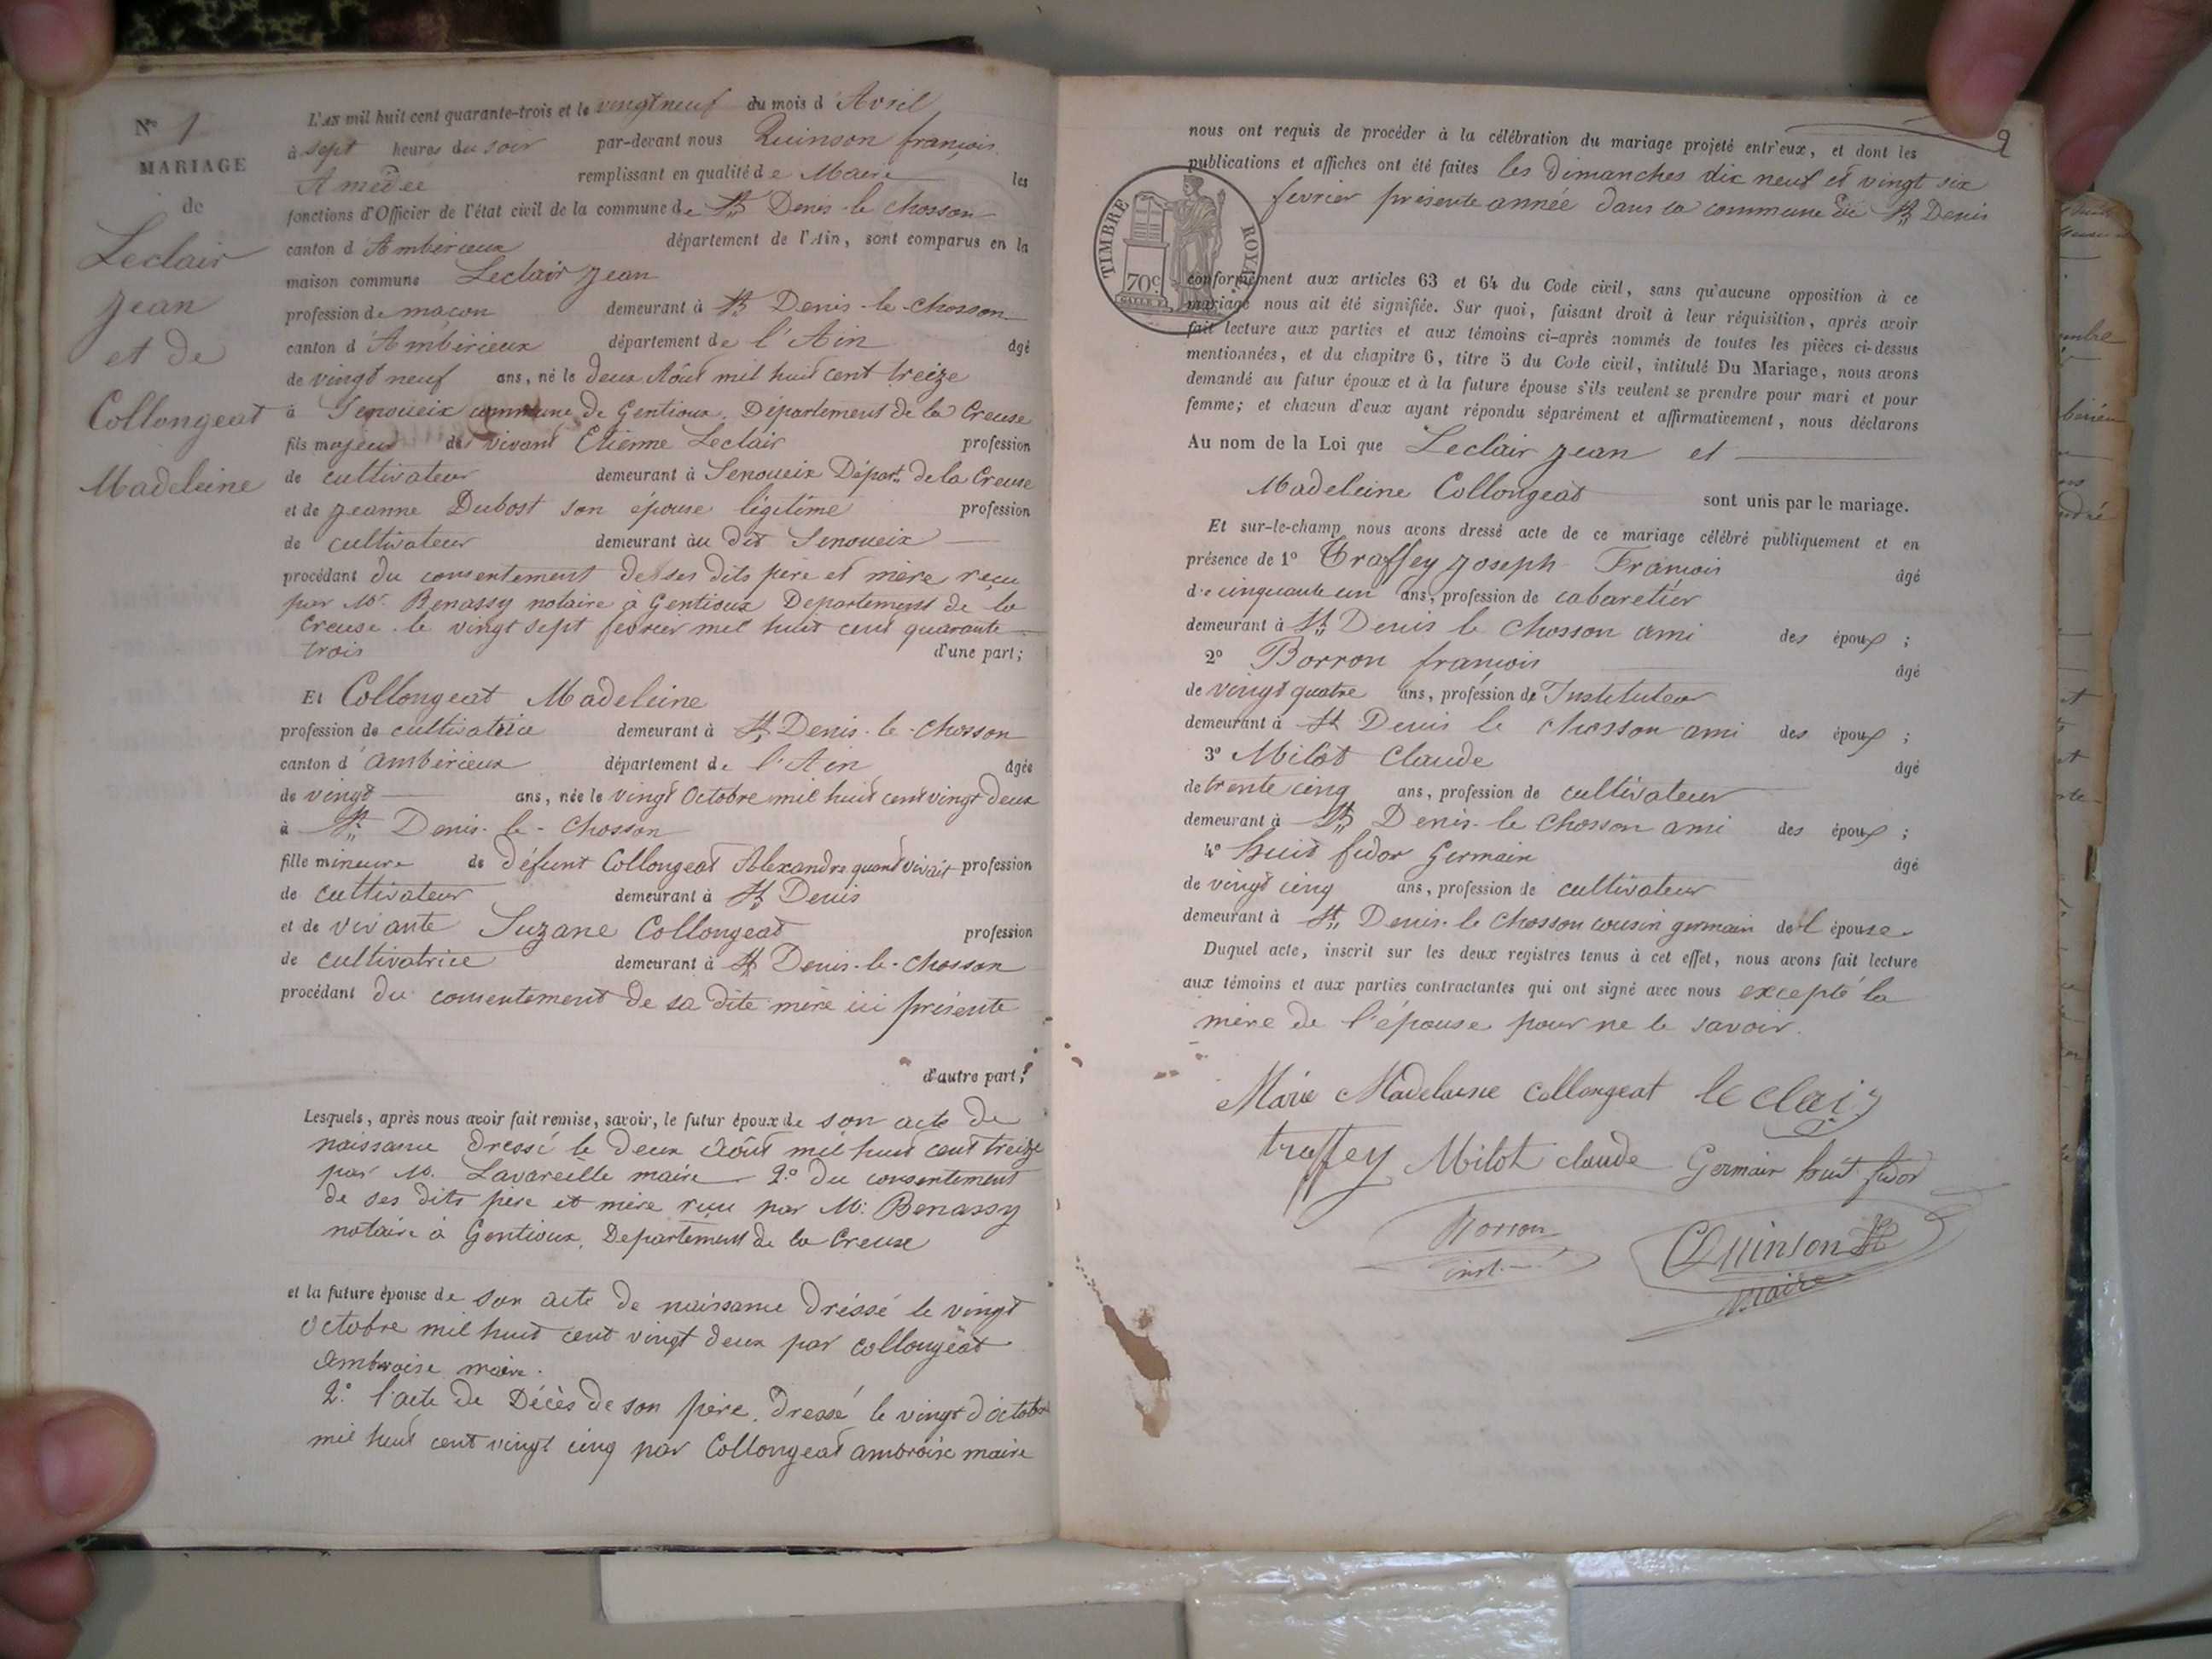 N° 1
MARIAGE
de
Leclair
Jean
et de
Collongeat
Madeleine
L'AN mil huit cent quarante-trois et le vingt neuf du mois d'Avril
à sept heures du soir par-devant nous Quinson françois
Amedée remplissant en qualité de Maire les
fonctions d'Officier de l'état civil de la commune de St Denis-le-Chosson
canton d'Ambérieux département de l'Ain, sont comparus en la
maison commune Leclair Jean
profession de maçon demeurant à St Denis-le-Chosson
canton d'Ambérieux département de l'Ain âgé
de vingt neuf ans, né le deux Août mil huit cent treize
à Senoueix commune de Gentioux. Département de la Creuse
fils majeur de vivant Etienne Leclair profession
de cultivateur demeurant à Senoueix Départ. de la Creuse
et de Jeanne Dubost son épouse légitime profession
de cultivateur demeurant au dit Senoueix
procédant du consentement de ses dits père et mère reçu
par Mr. Benassy notaire à Gentioux Departement de la
Creuse le vingt sept fevrier mil huit cent quarante
trois d'une part;
Et Collongeat Madeleine
profession de cultivatrice demeurant à St Denis-le-Chosson
canton d'ambérieux département de l'Ain âgée
de vingt ans, née le vingt Octobre mil huit cent vingt deux
à St Denis-le-Chosson
fille mineure de défunt Collongeat Alexandre quand vivait profession
de cultivateur demeurant à St Denis
et de vivante Suzane Collongeat profession
de cultivatrice demeurant à St Denis-le-Chosson
procédant du consentement de sa dite mère ici présente
d'autre part;
Lesquels, après nous avoir fait remise, savoir, le futur époux de son acte de
naissance dressé le deux Août mil huit cent treize
par M. Lavareille maire 2° du consentement
de ses dits père et mère reçu par M. Benassy
notaire à Gentioux, Departement de la Creuse
et la future épouse de son acte de naissance dréssé le vingt
Octobre mil huit cent vingt deux par Collongeat
Ambroise maire.
2° l'acte de Décès de son père, dressé le vingt d'octobre
mil huit cent vingt cinq par Collongeat ambroise maire
2
nous ont requis de procéder à la célébration du mariage projeté entr'eux, et dont les
publications et affiches ont été faites les dimanches dix neuf et vingt six
fevrier présente année dans la commune de St Denis
TIMBRE ROYAL
70c
conformément aux articles 63 et 64 du Code civil, sans qu'aucune opposition à ce
mariage nous ait été signifiée. Sur quoi, faisant droit à leur réquisition, après avoir
fait lecture aux parties et aux témoins ci-après nommés de toutes les pièces ci-dessus
mentionnées, et du chapitre 6, titre 5 du Code civil, intitulé Du Mariage, nous avons
demandé au futur époux et à la future épouse s'ils veulent se prendre pour mari et pour
femme; et chacun d'eux ayant répondu séparément et affirmativement, nous déclarons
Au nom de la Loi que Leclair Jean et
Madeleine Collongeat sont unis par le mariage.
Et sur-le-champ nous avons dressé acte de ce mariage célébré publiquement et en
présence de 1° Traffey Joseph François âgé
de cinquante un ans, profession de cabaretier
demeurant à St Denis le Chosson ami des époux;
2° Borron françois âgé
de vingt quatre ans, profession de Instituteur
demeurant à St Denis le Chosson ami des époux;
3° Milot Claude âgé
de trente cinq ans, profession de cultivateur
demeurant à St Denis-le Chosson ami des époux;
4° huit fidor Germain âgé
de vingt cinq ans, profession de cultivateur
demeurant à St Denis-le Chosson cousin germain de l'épouse
Duquel acte, inscrit sur les deux registres tenus à cet effet, nous avons fait lecture
aux témoins et aux parties contractantes qui ont signé avec nous excepté la
mère de l'épouse pour ne le savoir.
Marie Madelaine Collongeat leclair
traffey Milot claude Germain huit fidor
Borron
inst.
Quinson
Maire